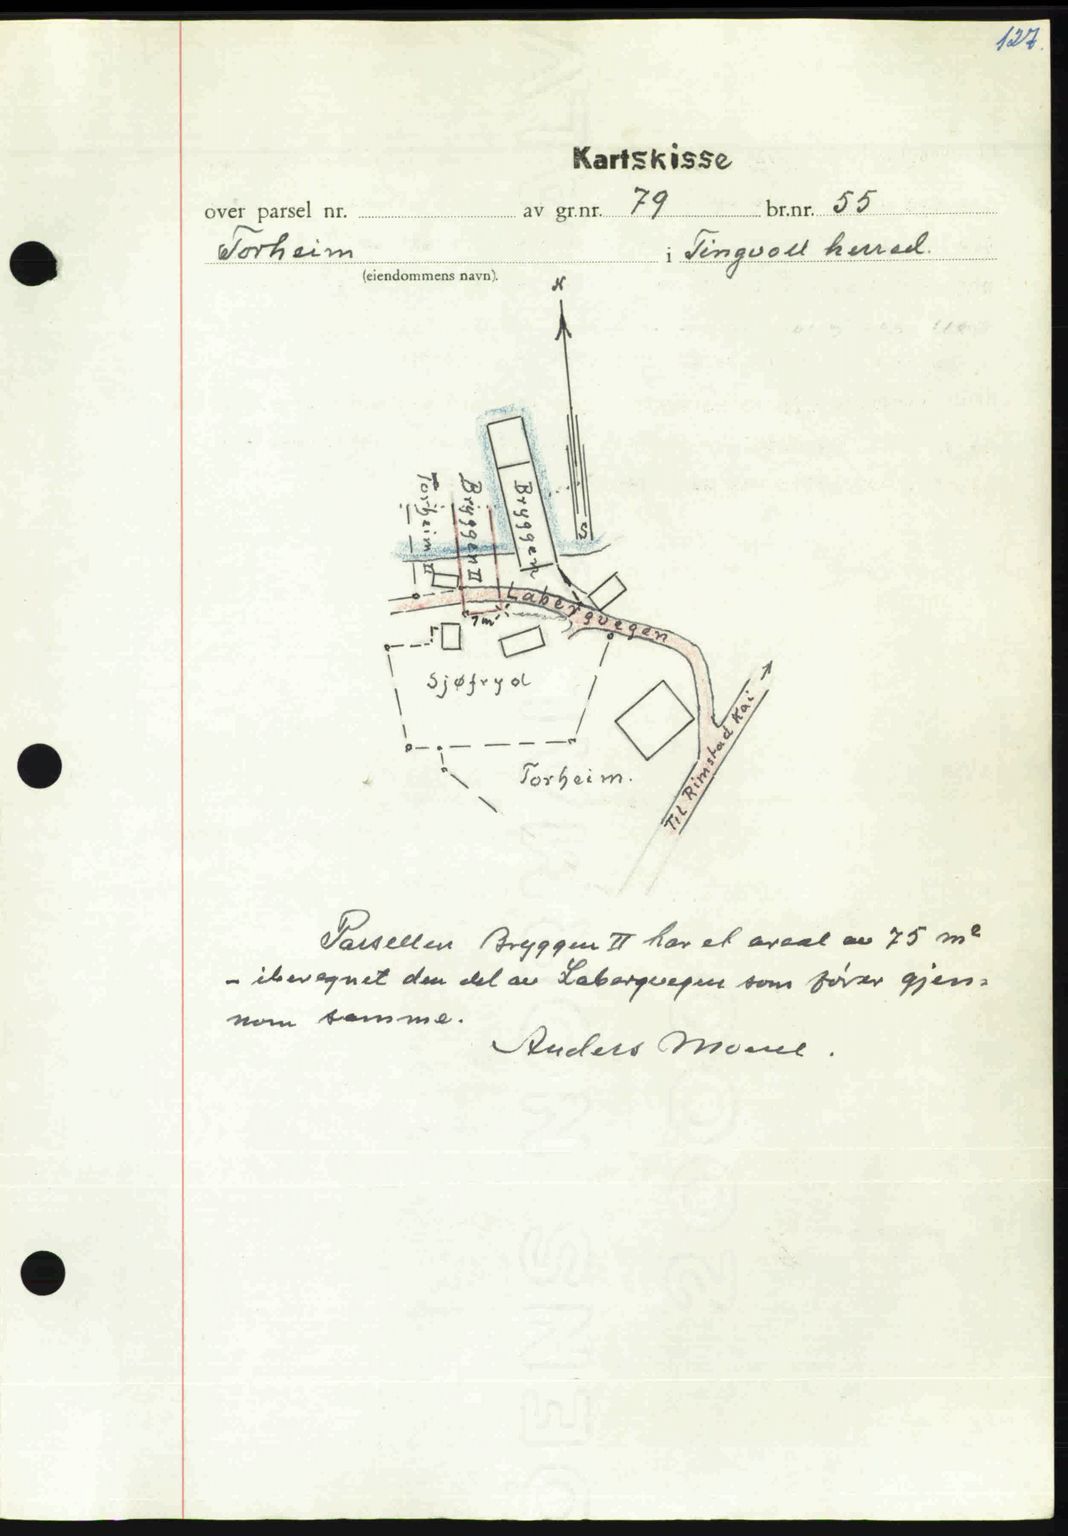 127.
Kartskisse
over parsel nr. av gr.nr. 79 br.nr. 55
Torheim i Tingvoll herred.
(eiendommens navn).
N
S
Bryggen
Bryggen II
Torheim II
Labergvegen
7m
Sjøfryd
Torheim.
Til Rimstad Kai
Parsellen Bryggen II har et areal av 75 m²
- iberegnet den del av Labergvegen som fører gjen-
nom samme.
Anders